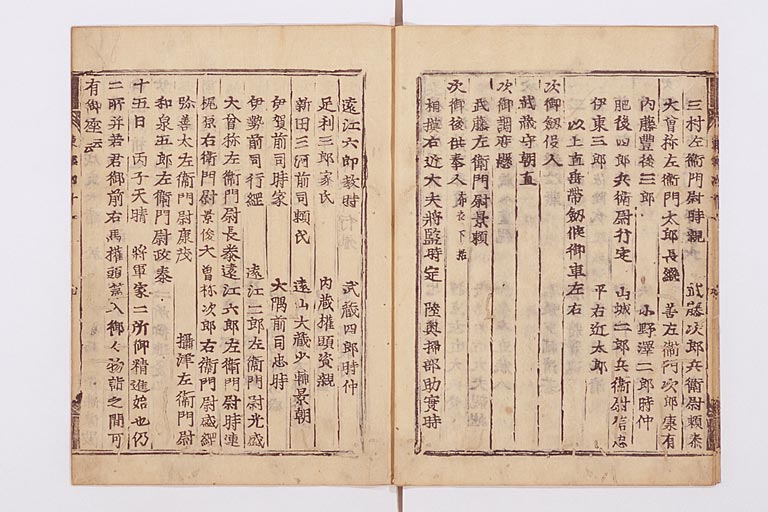 三村左衛門尉時親　武藤次郎兵衛尉頼泰
大曾祢左衛門太郎長継　善右衛門次郎康有
内藤豊後三郎　小野澤二郎時仲
肥後四郎兵衛尉行定　山城二郎兵衛尉信忠
伊東三郎　平右近太郎
以上直垂帯劔候御車左右
次御劔役人
武藏守朝直
次御調度懸
武藤左衛門尉景頼
次御後供奉人
相摸右近大夫将監時定　陸奥掃部助實時
遠江六郎教時　武藏四郎時仲
足利三郎家氏　内藏權頭資親
新田三河前司頼氏　遠山大藏少輔景朝
伊賀前司時家　大隅前司忠時
伊勢前司行經　遠江二郎左衛門尉光盛
大曾祢左衛門尉長泰　遠江六郎左衛門尉時連
梶原右衛門尉景俊　大曽祢次郎右衛門尉盛經
弥善太左衛門尉康茂　攝津左衛門尉
和泉五郎左衛門尉政泰
十五日丙子天晴　将軍家二所御精進始也仍
二所并若君御前右馬權頭
有御產云云